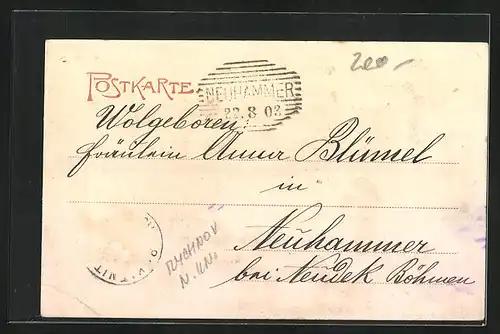 200.-
POSTKARTE
NEUHAMMER
22 8 03
Wolgeboren:
Fräulein Anna Blümel
in
Neuhammer
bei Neudek Böhmen
RYCHNOV
N. KN.